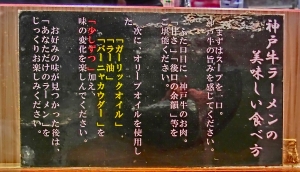 神戸牛ラーメンの
美味しい食べ方
まずはスープを一口。
神戸牛の旨みを感じてください。
ふた口目に、神戸牛のお肉。
「甘さ」「後口の余韻」等を
ご堪能ください。
次に、オリーブオイルを使用した
「ガーリックオイル」
「ラー油」
「バーニャカウダー」を
「少しずつ」加え、
味の変化を楽しんでください。
お好みの味が見つかった後は、
「あなただけのラーメン」を
じっくりお楽しみください。